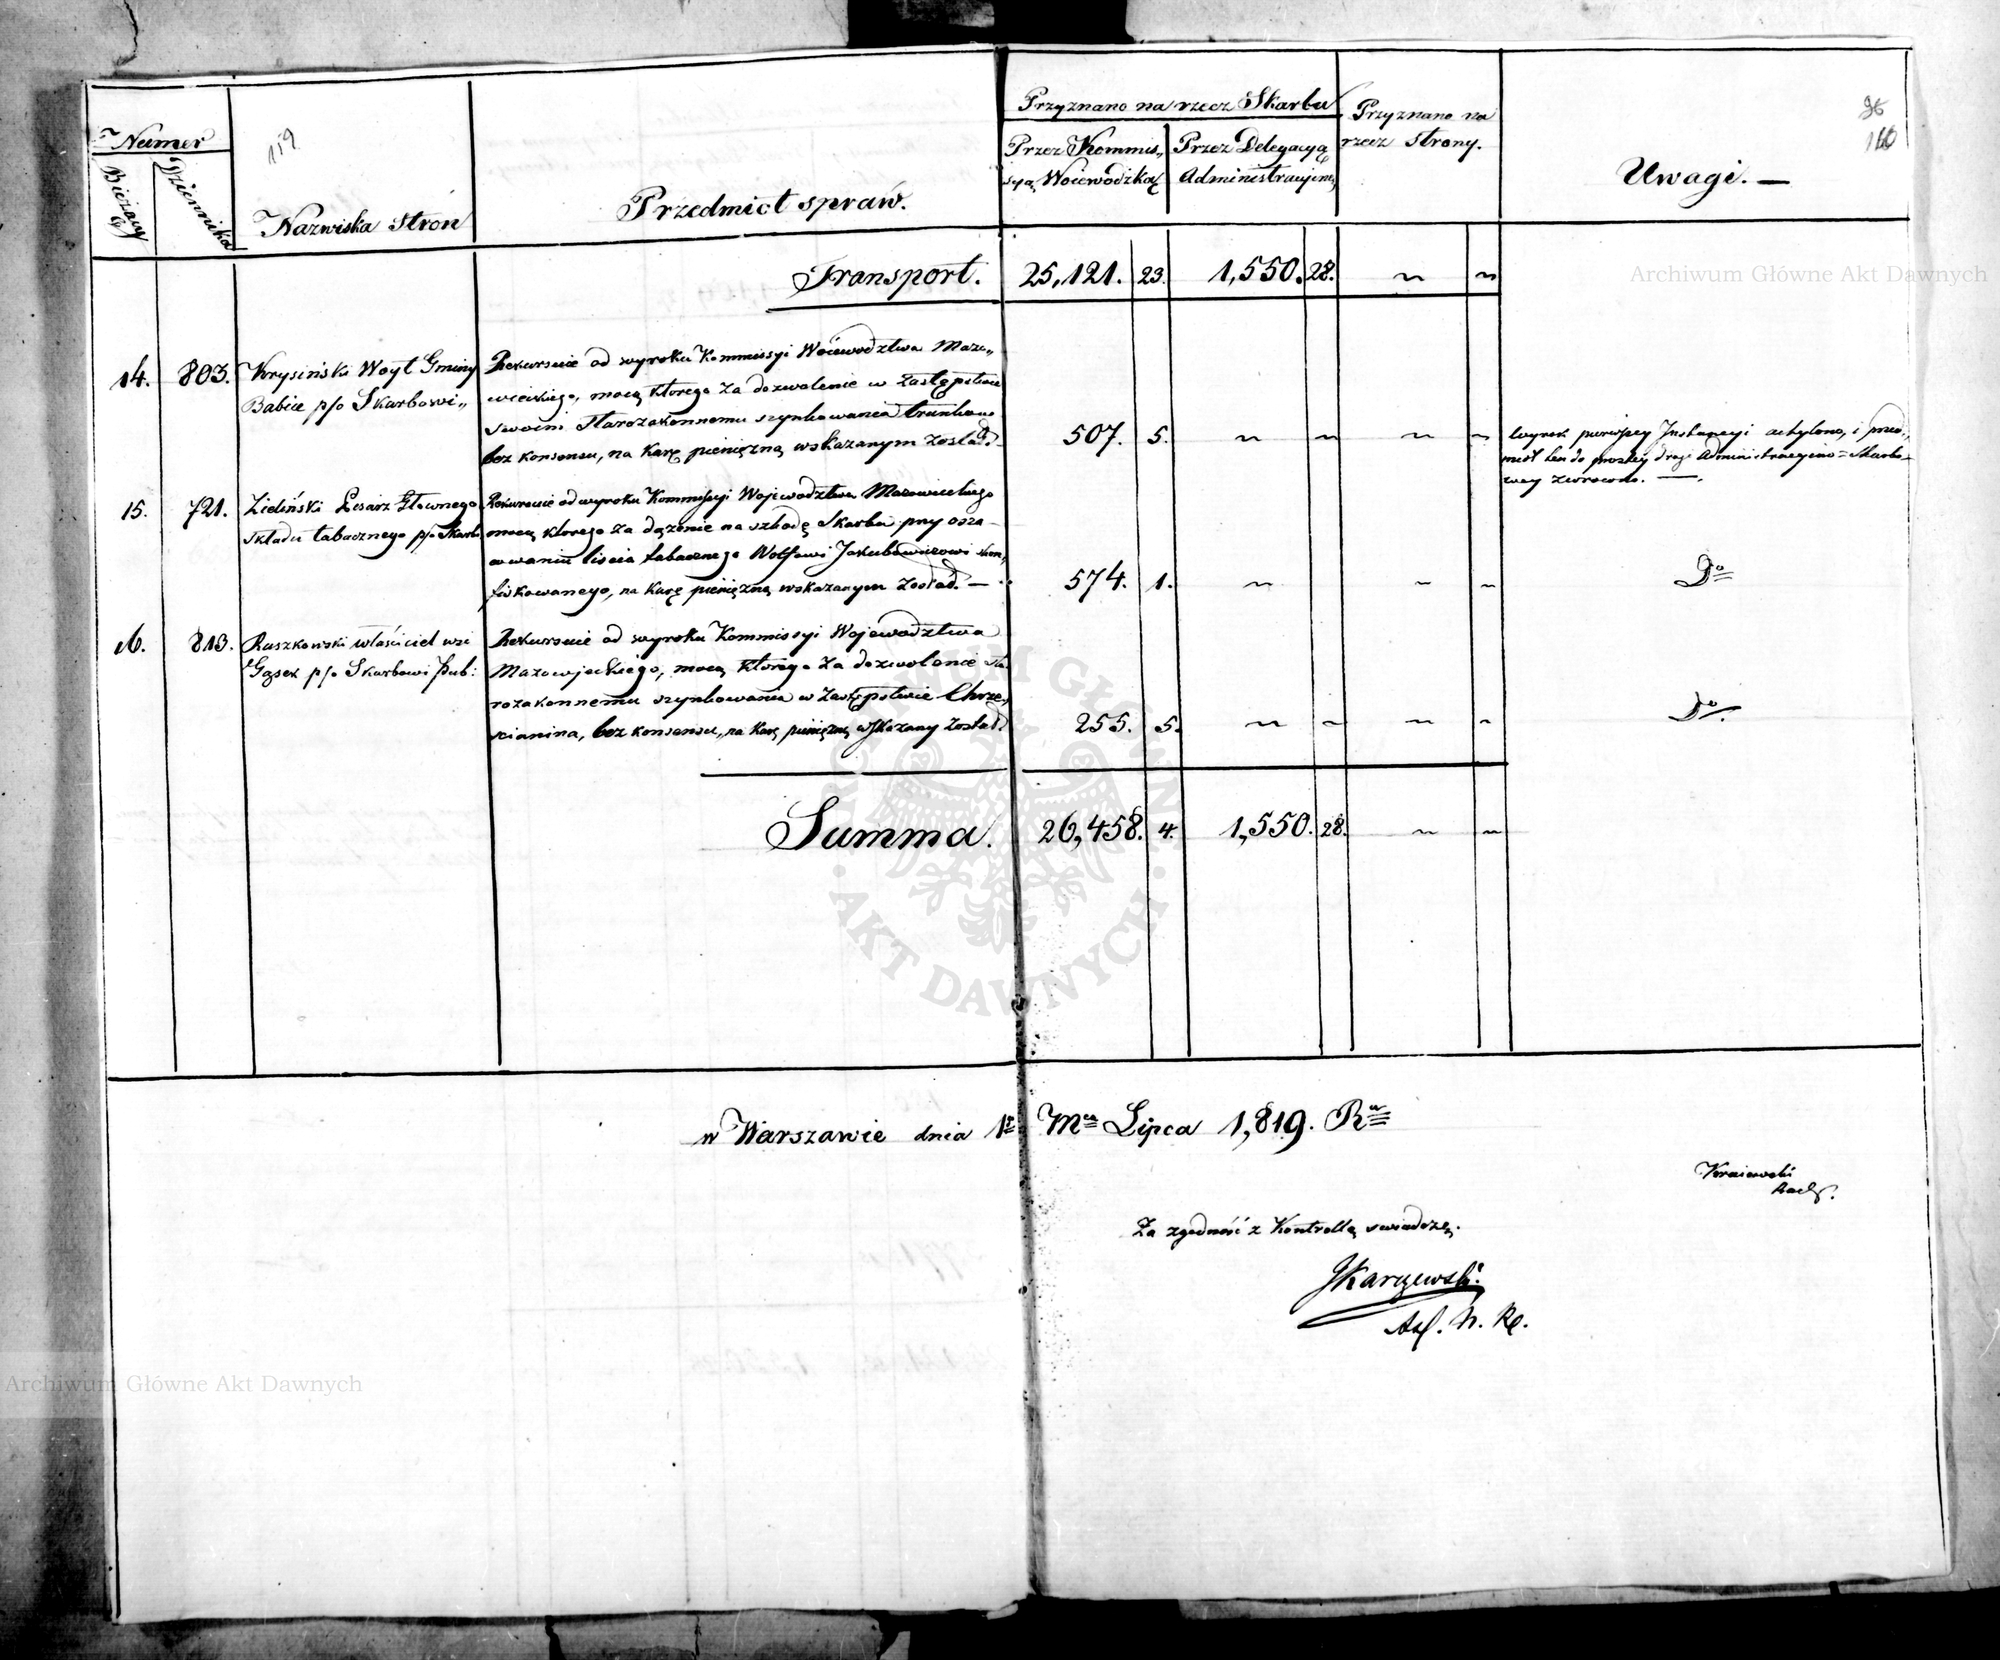 Numer
Bieżący
Dziennika
159
Nazwiska Stron
Przedmiot spraw.
Przyznano na rzecz Skarbu
Przez Kommis„
syą Woiewodzką
Przez Delegacyą
Administracyiną
Przyznano na
rzecz Strony.
Uwagi. —
96
160
Transport. 25,121. 23. 1,550. 28. ~ ~
14. 803. Krysiński Woyt Gminy
Babice p/o Skarbowi„
Rekursuie od wyroku Kommissyi Woiewodztwa Mazo„
wieckiego, mocą którego za dozwolenie w zastępstwie
swoim Starozakonnemu szynkowania trunkow
bez konsensu, na karę pieniężną wskazanym został.
507. 5. ~ ~ ~ ~
Wyrok pierwszey Instancyi uchylono, i przed„
miot ten do prostey drogi Administracyino = Skarbo„
wey zwrocono. —.
15. 721. Zieliński Pisarz Głownego
składu tabacznego p/o Skarb:
Rekursuie od wyroku Kommissyi Woiewodztwa Mazowieckiego
mocą ktorego za dążenie na szkodę Skarbu przy osza„
cowaniu liścia tabacznego Wolfowi Jakubowiczowi skon„
fiskowanego, na karę pieniężną wskazanym został. —
574. 1. ~ ~ ~
Do
16. 813. Raszkowski właściciel wsi
Gąsek p/o Skarbowi Pub:
Rekursuie od wyroku Kommissyi Wojewodztwa
Mazowjeckiego, mocą którego za dozwolenie sta„
rozakonnemu szynkowania w zastępstwie Chrze„
scianina, bez konsensu, na karę pieniężną wskazany został.
255. 5. ~ ~ ~ ~
Do.
Summa. 26,458. 4. 1,550. 28. ~ ~
w Warszawie dnia 1go Mca Lipca 1,819. Rku
Kraiewski
Za zgodność z Kontrollą swiadczę.
Skarzewski.
Archiwum Główne Akt Dawnych
Archiwum Główne Akt Dawnych
ARCHIWUM GŁÓWNE
· AKT DAWNYCH ·